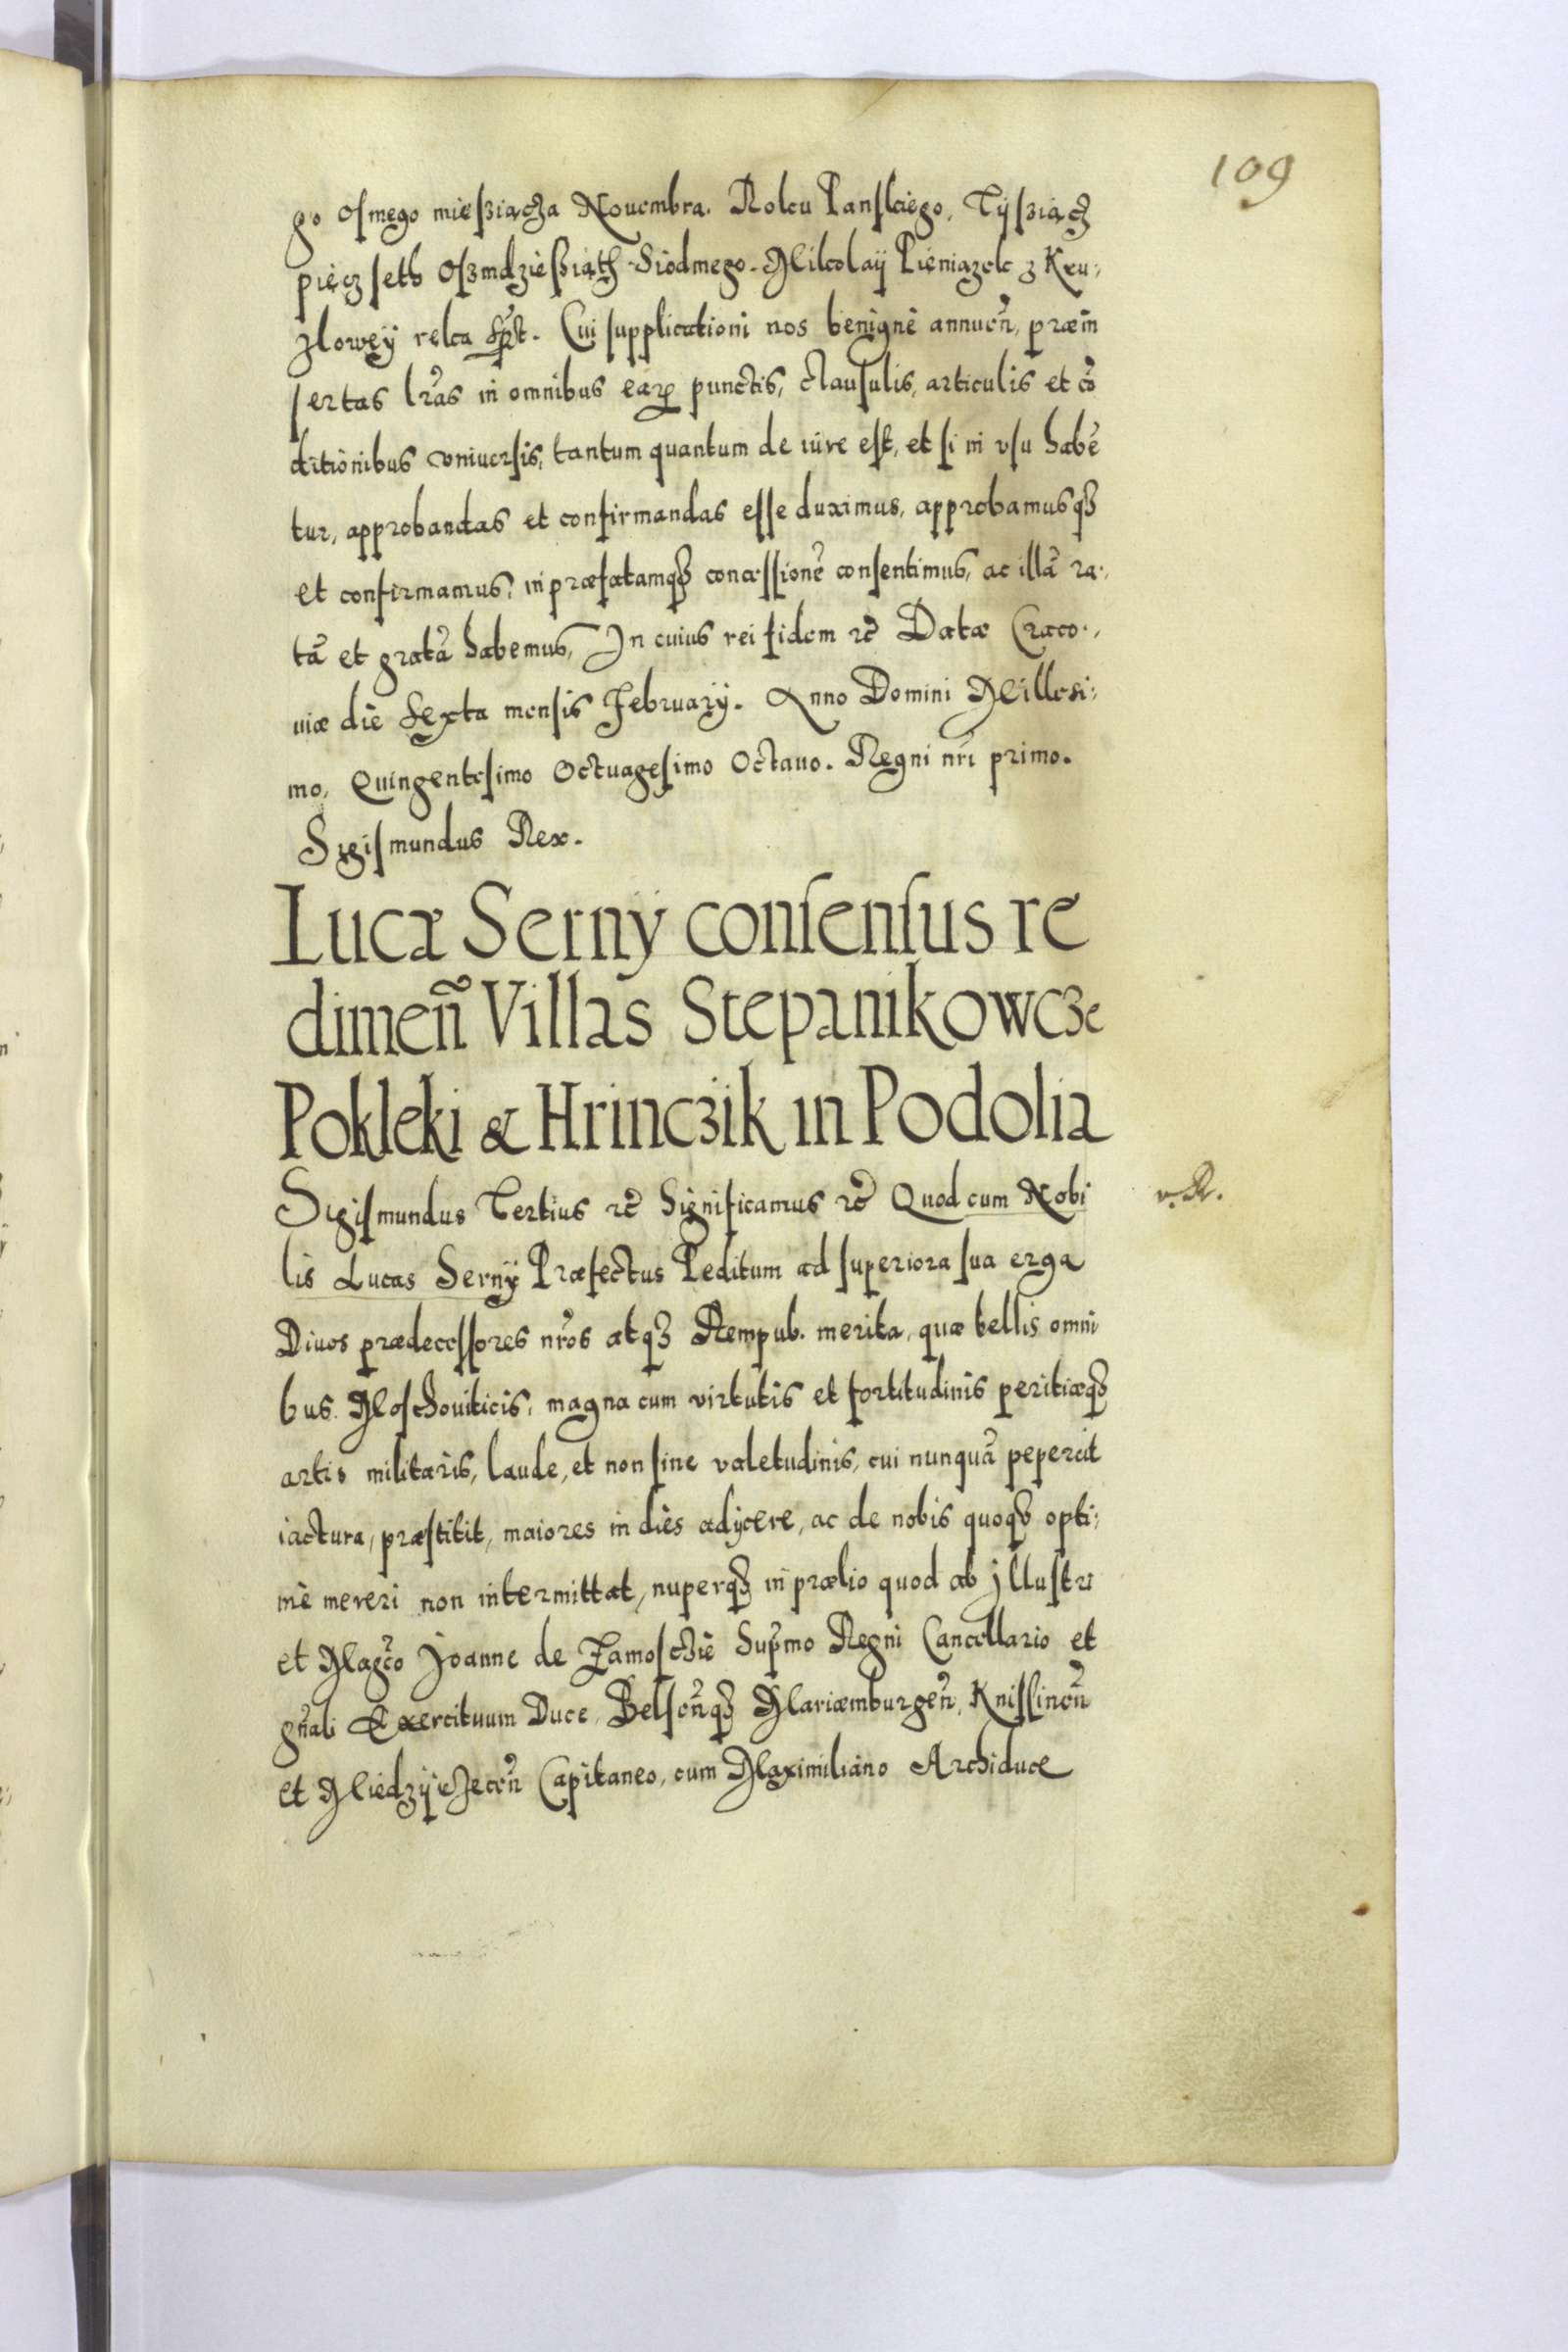 109
go osmego mießiącza Nouembra. Roku Panskiego, Tÿsziącz
pięcz seth Oszmdzießiąth Siodmego. Mikolaÿ Pieniązek z Kru,
zloweÿ reka sßt. Cui supplicationi nos benignè annueñ, præin
sertas lras in omnibus earꝝ punctis, clausulis, articulis et cõ
ditionibus vniuersis, tantum quantum de iure est, et si in vsu habẽ
tur, approbandas et confirmandas esse duximus, approbamusqꝫ
et confirmamus, in præfatamqꝫ concessionẽ consentimus, ac illã ra,
tã et gratã habemus, In cuius rei fidem ꝛc̃ Datæ Craco,
uiæ die Sexta mensis Februarÿ. Anno Domini Millesi:
mo, Quingentesimo Octuagesimo Octauo. Regni nr̃i primo.
Sigismundus Rex.
Lucæ Sernÿ consensus re
dimeñ Villas Stepanikowcze
Pokleki & Hrinczik in Podolia
Sigismundus Tertius ꝛc̃ Significamus ꝛc̃ Quod cum Nobi
v. R.
lis Lucas Sernÿ Præfectus Peditum ad superiora sua erga
Diuos prædecessores nr̃os atqꝫ Rempub. merita, quæ bellis omni
bus Moschouiticis, magna cum virtutis et fortitudinis peritiæqꝫ
artis militaris, laude, et non sine valetudinis, cui nunquã pepercit
iactura, præstitit, maiores in dies adÿcere, ac de nobis quoqꝫ opti:
mè mereri non intermittat, nuperqꝫ in prælio quod ab Illustri
et Magc̃o Joanne de Zamoschie Sup̃mo Regni Cancellario et
gñali Exercituum Duce, Belseñqꝫ Mariæmburgeñ, Knissineñ
et Miedzÿrzeceñ Capitaneo, cum Maximiliano Archiduce